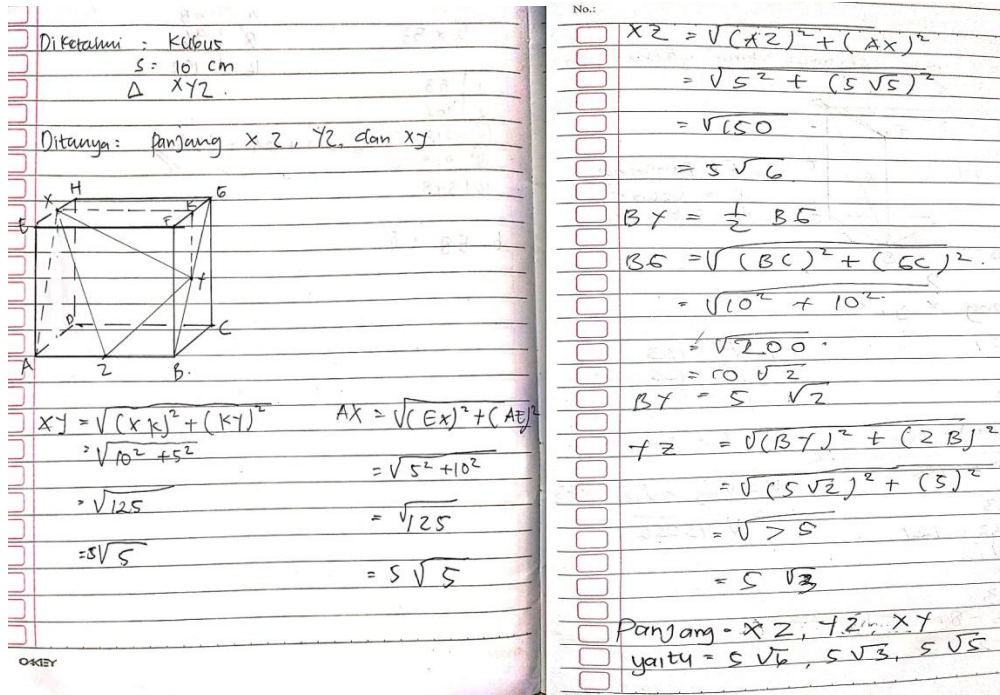 Diketahui : Kubus
S = 10 cm
Δ XYZ.
Ditanya : Panjang XZ, YZ, dan XY
H
G
X
K
E
F
Y
D
C
A
Z
B.
XY = √(XK)² + (KY)²
= √10² + 5²
= √125
= 5√5
AX = √(EX)² + (AE)²
= √5² + 10²
= √125
= 5√5
OKEY
No.:
XZ = √(AZ)² + (AX)²
= √5² + (5√5)²
= √150
= 5√6
BY = 1/2 BG
BG = √(BC)² + (GC)².
= √10² + 10²
= √200.
= 10√2
BY = 5√2
YZ = √(BY)² + (ZB)²
= √(5√2)² + (5)²
= √75
= 5√3
Panjang = XZ, YZ, XY
yaitu = 5√6, 5√3, 5√5